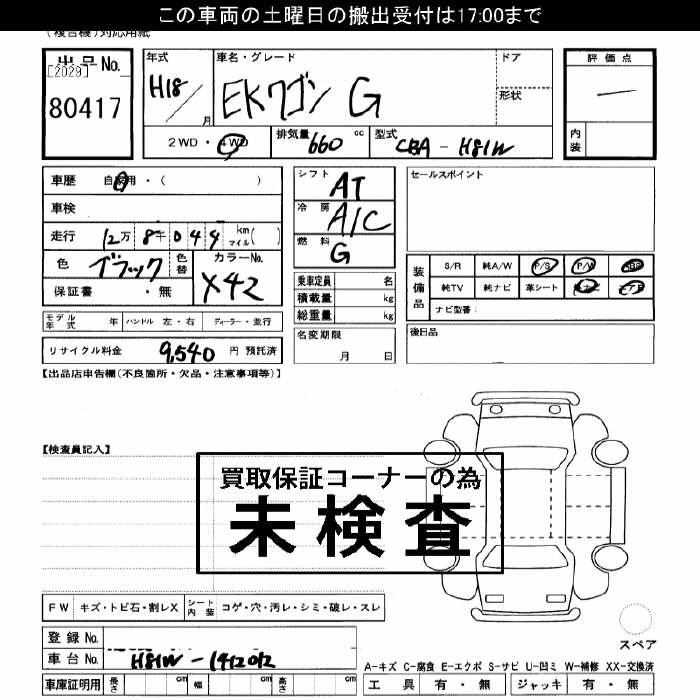 この車両の土曜日の搬出受付は17:00まで
(複合機)対応用紙
出品No. 年式 車名・グレード ドア 評価点
[2029] H18 / 月 EKワゴン G 形状 —
80417
2WD・4WD 排気量 660 cc 型式 CBA-H81W 内装
車歴 自家用・( )
シフト AT
セールスポイント
車検
冷房 A/C
走行 12万 8千 0 4 4 km マイル( )
燃料 G
色 ブラック 色替 カラーNo. X42
装備品 S/R 純A/W P/S P/W ABS
保証書 ・無
乗車定員 名
純TV 純ナビ 革シート
積載量 kg
総重量 kg
ナビ型番:
モデル年式 年 ハンドル 左・右 ディーラー・並行
名変期限 月 日
後日品
リサイクル料金 9,540 円 預託済
【出品店申告欄(不良箇所・欠品・注意事項等)】
【検査員記入】
買取保証コーナーの為
未検査
FW キズ・トビ石・割レX シート内装 コゲ・穴・汚レ・シミ・破レ・スレ
登録No.
スペア
車台No. H81W-1412012
A-キズ C-腐食 E-エクボ S-サビ U-凹ミ W-補修 XX-交換済
車庫証明用 長さ cm 幅 cm 高さ cm
工具 有・無 ジャッキ 有・無